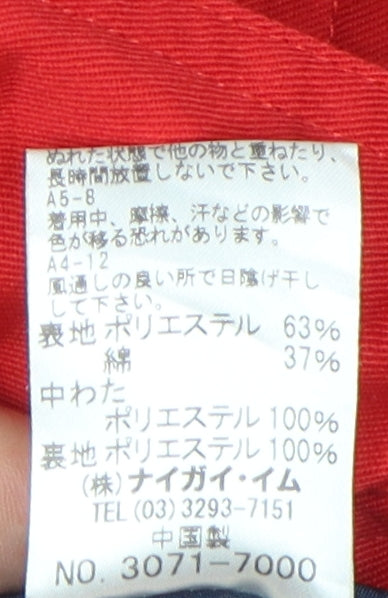 ぬれた状態で他の物と重ねたり、
長時間放置しないで下さい。
A5-8
着用中、摩擦、汗などの影響で
色が移る恐れがあります。
A4-12
風通しの良い所で日陰げ干し
して下さい。
表地 ポリエステル 63%
綿 37%
中わた
ポリエステル 100%
裏地 ポリエステル 100%
(株)ナイガイ・イム
TEL(03)3293-7151
中国製
NO. 3071-7000